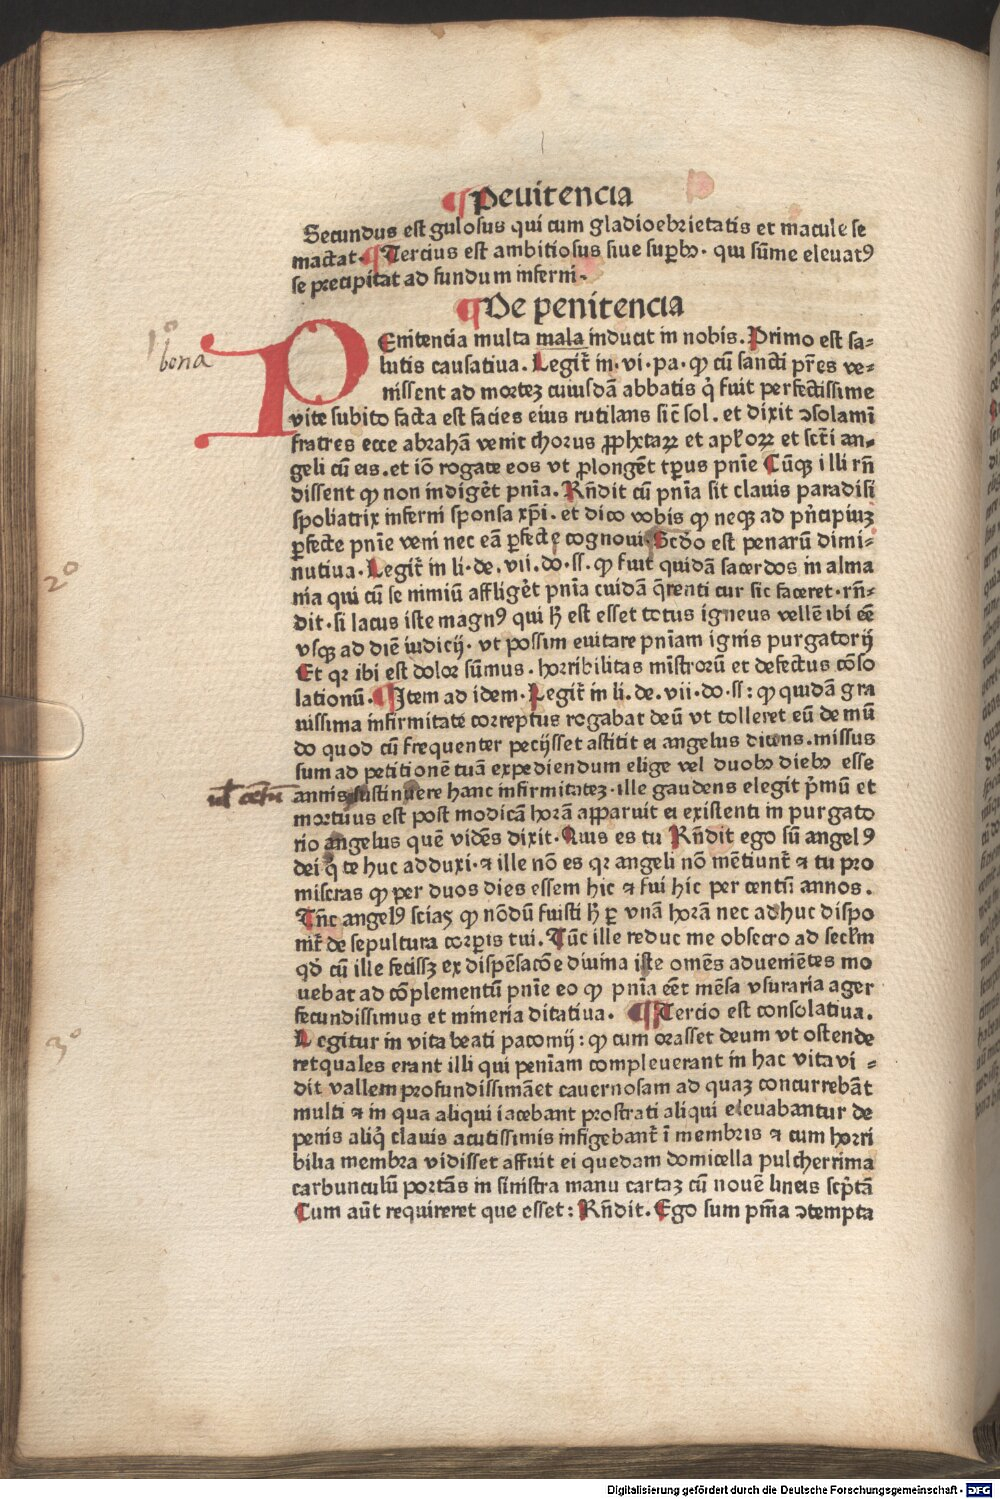 ¶ Peuitencia
Secundus est gulosus qui cum gladioebrietatis et macule se
mactat· ¶ Tercius est ambitiosus siue suꝑbꝰ· qui sūme eleuatꝰ
se precipitat ad fundum inferni·
¶ De penitencia
PEnitencia multa mala inducit in nobis. Primo est sa⸗
1º
bona
lutis causatiua. Legit̄ in·vi·pa·ꝙ cū sancti pr̄es ve⸗
nissent ad mortez cuiusdā abbatis q̇ fuit perfectissime
vite subito facta est facies eius rutilans sic̄ sol. et dixit ꝯsolamī
fratres ecce abrahā venit chorus ꝓphetaꝝ et apl̓oꝝ et sct̄i an⸗
geli cū eis.et iō rogate eos vt ꝓlongēt tp̄us pn̄ie Cūqꝫ illi rn̄
dissent ꝙ non indigēt pn̄ia. Rn̄dit cū pn̄ia sit clauis paradisi
spoliatrix inferni sponsa xp̄i. et dico vobis ꝙ neqꝫ ad pn̄cipiuꝫ
ꝑfecte pn̄ie veni nec eā ꝑfecte cognoui·Scd̄o est penarū dimi⸗
nutiua·Legit̄ in li·de.vii.do·ss.ꝙ fuit quidā sacerdos in alma
2º
nia qui cū se nimiū affligēt pn̄ia cuidā q̄renti cur sic faceret·rn̄⸗
dit·si lacus iste magnꝰ qui h̄ est esset totus igneus vellē ibi eē
vsqꝫ ad diē iudicij· vt possim euitare pn̄iam ignis purgatorij
Et qꝛ ibi est dolor sūmus.horribilitas mīstrorū et defectus cōso
lationū. ¶ Item ad idem·Legit̄ in li.de.vii·do·ss: ꝙ quidā gra
uissima infirmitate correptus rogabat deū vt tolleret eū de mū
do quod cū frequenter petijsset astitit ei angelus dicens.missus
sum ad petitionē tuā expediendum elige vel duobꝰ diebꝰ esse
annis sustinuere hanc infirmitatez·ille gaudens elegit p̄mū et
mortuus est post modicā horā apparuit ei existenti in purgato
rio angelus quē vidēs dixit·Quis es tu Rn̄dit ego sū angelꝰ
dei q̇ te huc adduxi·⁊ ille nō es qꝛ angeli nō mētiunt̄ ⁊ tu pro
miseras ꝙ per duos dies essem hic ⁊ fui hic per centū annos.
Tūc angelꝰ sciaꝫ ꝙ nōdū fuisti h̄ ꝑ vnā horā nec adhuc dispo
nit̄ de sepultura corꝑis tui. Tūc ille reduc me obsecro ad secl̄m
qd̄ cū ille fecissꝫ ex dispēsacōe diuina iste omēs aduenīētes mo
uebat ad cōplementū pn̄ie eo ꝙ pn̄ia eēt mēsa vsuraria ager
fecundissimus et mineria ditatiua. ¶¶ Tercio est consolatiua.
Legitur in vita beati pacomij: ꝙ cum orasset deum vt ostende
3º
ret quales erant illi qui penīam compleuerant in hac vita vi⸗
dit vallem profundissimāet cauernosam ad quaꝫ concurrebāt
multi ⁊ in qua aliqui iacebant prostrati aliqui eleuabantur de
penis aliq̇ clauis acutissimis infigebant̄ ī membris ⁊ cum horri
bilia membra vidisset affuit ei quedam domicella pulcherrima
carbunculū portās in sinistra manu cartaꝫ cū nouē lineis scp̄tā
Cum aūt requireret que esset: Rn̄dit. Ego sum pm̄a ꝯtempta
Digitalisierung gefördert durch die Deutsche Forschungsgemeinschaft - DFG